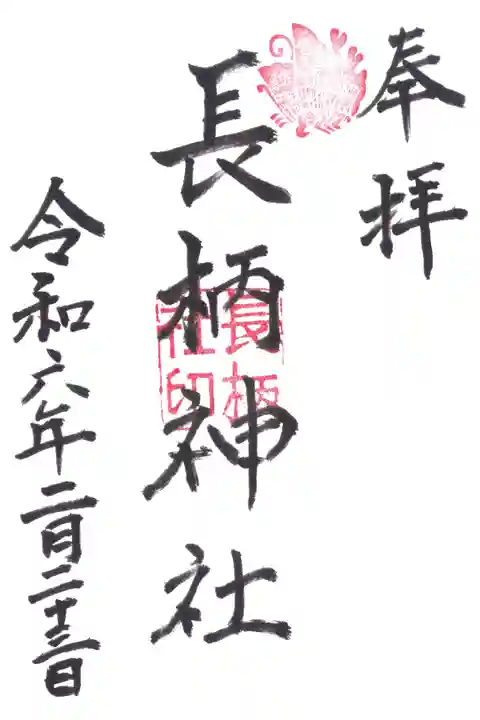 奉拝
長柄神社
長柄社印
令和六年二月二十三日